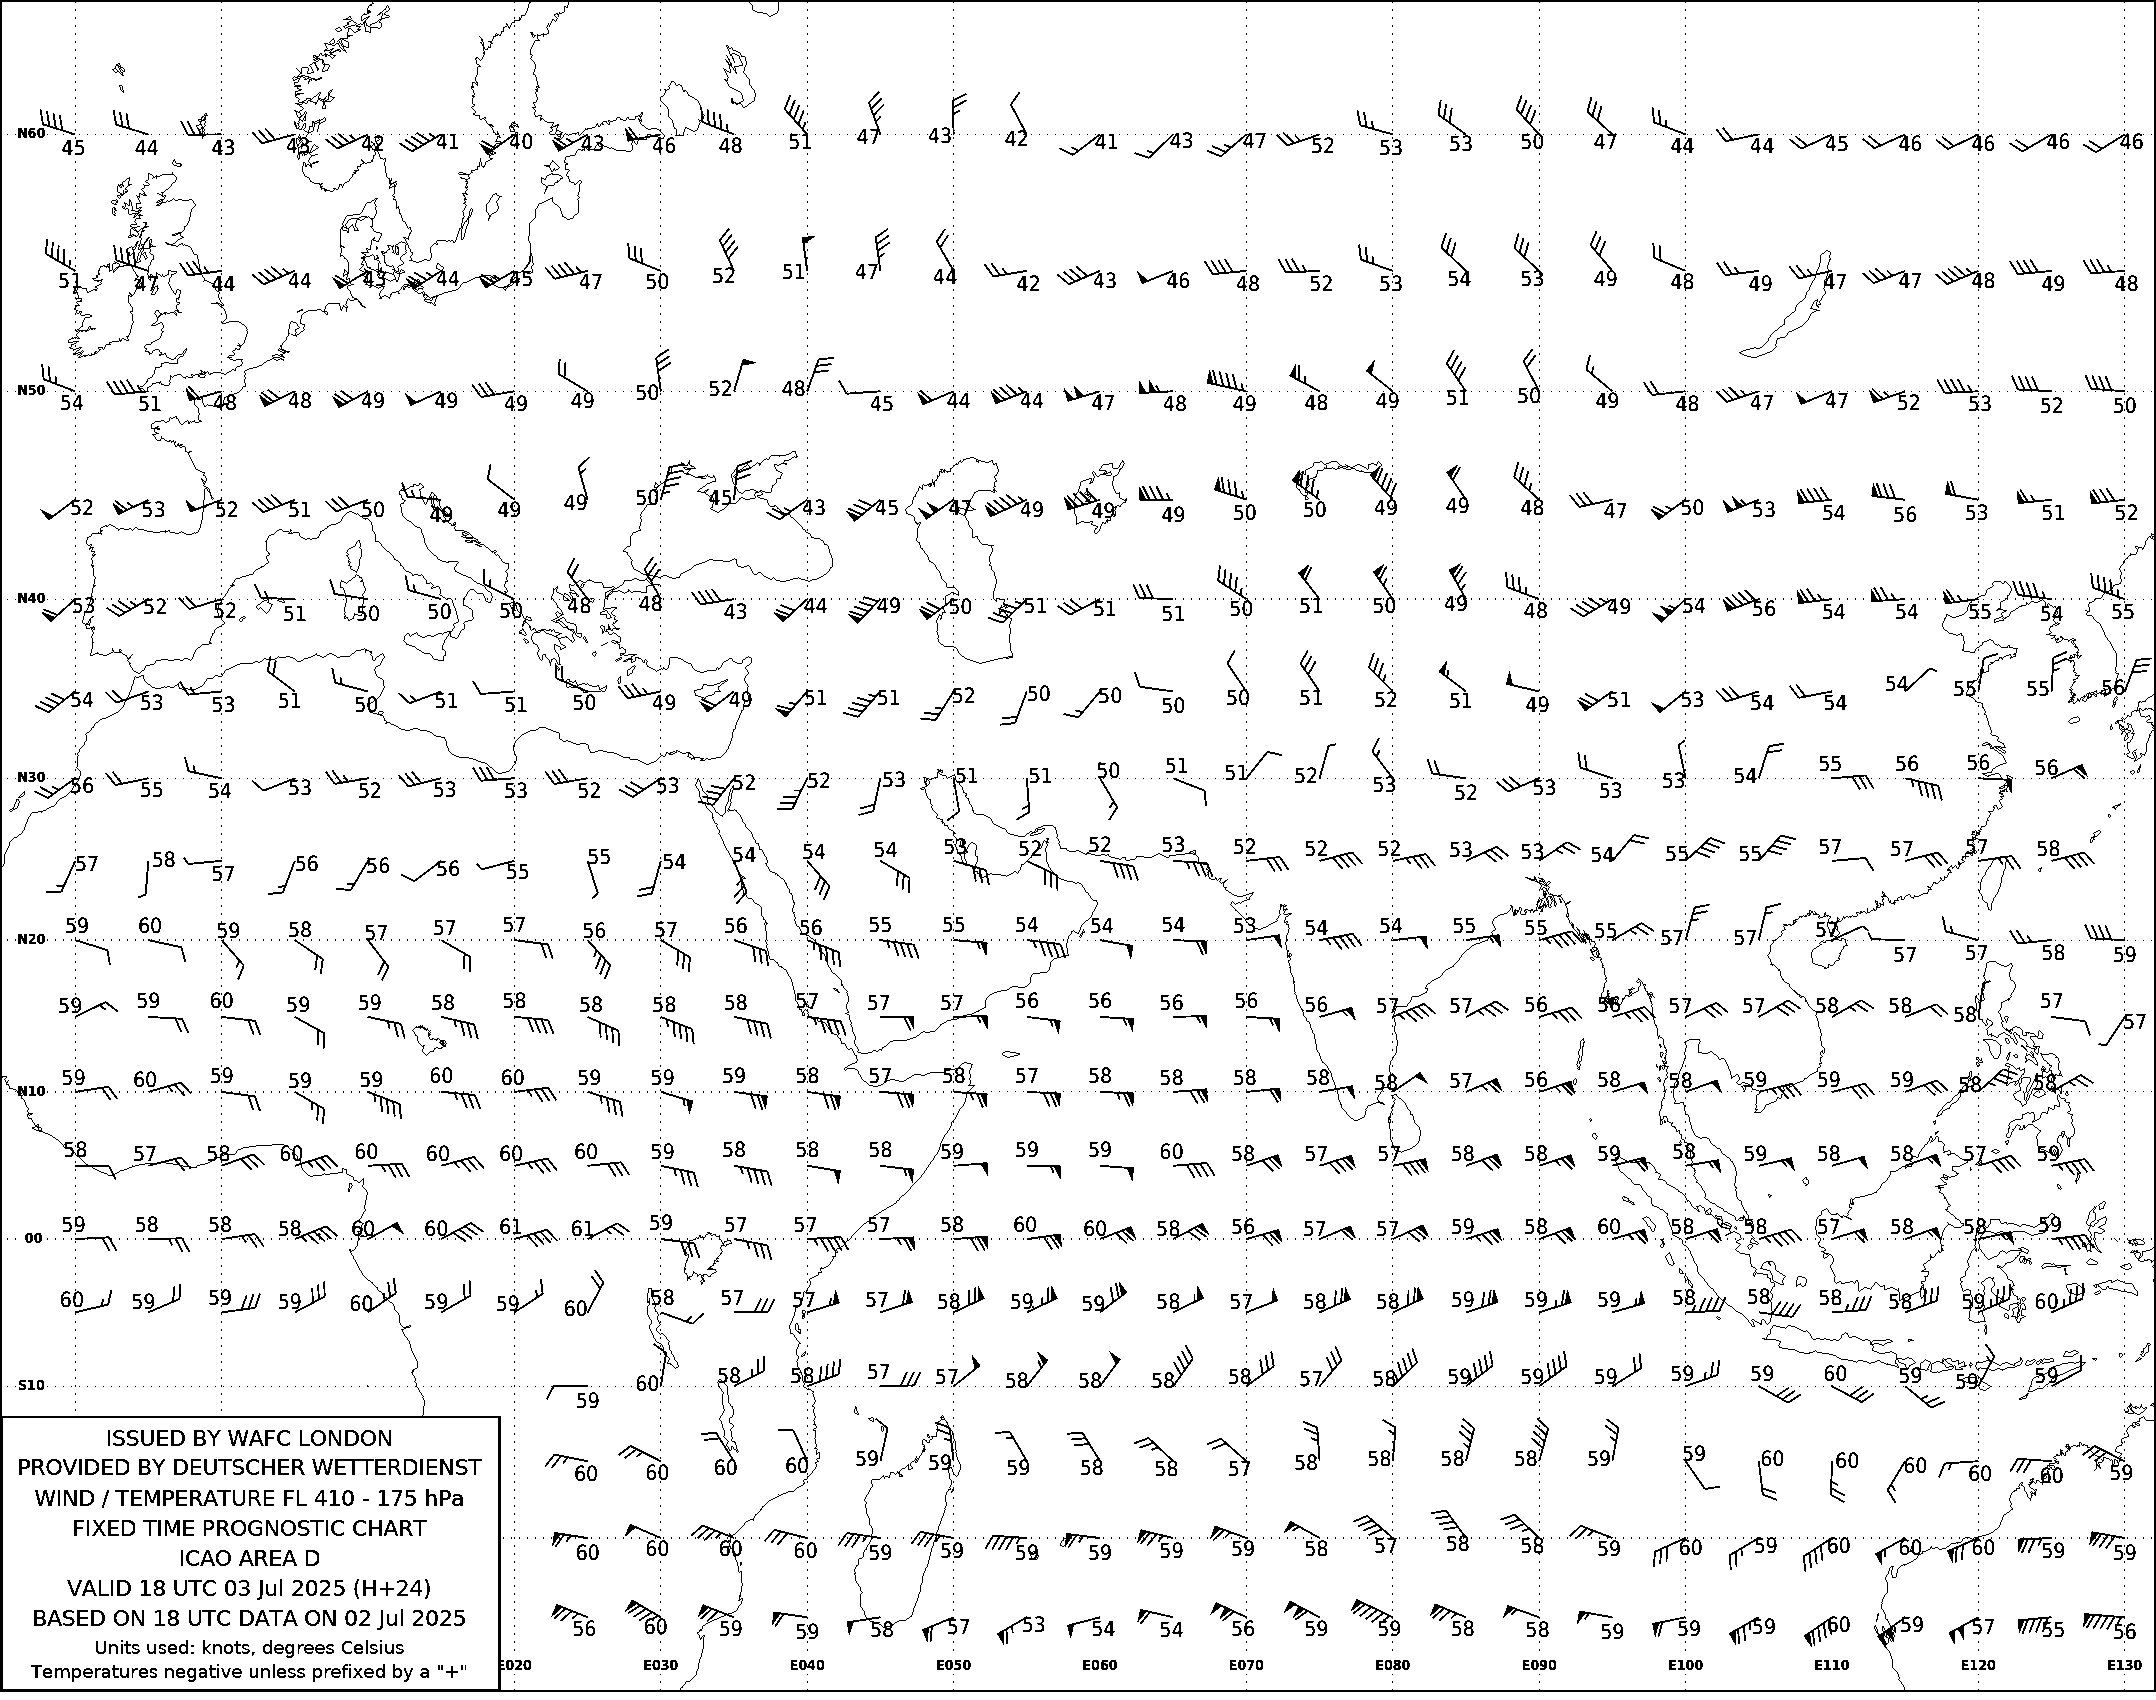 N60 45 44 43 43 42 41 40 43 46 48 51 47 43 42 41 43 47 52 53 53 50 47 44 44 45 46 46 46 46
51 47 44 44 43 44 45 47 50 52 51 47 44 42 43 46 48 52 53 54 53 49 48 49 47 47 48 49 48
N50 54 51 48 48 49 49 49 49 50 52 48 45 44 44 47 48 49 48 49 51 50 49 48 47 47 52 53 52 50
52 53 52 51 50 49 49 49 50 45 43 45 47 49 49 49 50 50 49 49 48 47 50 53 54 56 53 51 52
N40 53 52 52 51 50 50 50 48 48 43 44 49 50 51 51 51 50 51 50 49 48 49 54 56 54 54 55 54 55
54 53 53 51 50 51 51 50 49 49 51 51 52 50 50 50 50 51 52 51 49 51 53 54 54 54 55 55 56
N30 56 55 54 53 52 53 53 52 53 52 52 53 51 51 50 51 51 52 53 52 53 53 53 54 55 56 56 56
57 58 57 56 56 56 55 55 54 54 54 54 53 52 52 53 52 52 52 53 53 54 55 55 57 57 57 58
N20 59 60 59 58 57 57 57 56 57 56 56 55 55 54 54 54 53 54 54 55 55 55 57 57 57 57 57 58 59
59 59 60 59 59 58 58 58 58 58 57 57 57 56 56 56 56 56 57 57 56 56 57 57 58 58 58 57 57
N10 59 60 59 59 59 60 60 59 59 59 58 57 58 57 58 58 58 58 58 57 56 58 58 59 59 59 58 58
58 57 58 60 60 60 60 60 59 58 58 58 59 59 59 60 58 57 57 58 58 59 58 59 58 58 57 59
00 59 58 58 58 60 60 61 61 59 57 57 57 58 60 60 58 56 57 57 59 58 60 58 58 57 58 58 59
60 59 59 59 60 59 59 60 58 57 57 57 58 59 59 58 57 58 58 59 59 59 58 58 58 58 59 60
S10 59 60 58 58 57 57 58 58 58 58 57 58 59 59 59 59 59 60 59 59 59
60 60 60 60 59 59 59 58 58 57 58 58 58 58 59 59 60 60 60 60 60 59
60 60 60 60 59 59 59 59 59 59 58 57 58 58 59 60 59 60 60 60 59 59
56 60 59 59 58 57 53 54 54 56 59 59 58 58 59 59 59 60 59 57 55 56
E020 E030 E040 E050 E060 E070 E080 E090 E100 E110 E120 E130
ISSUED BY WAFC LONDON
PROVIDED BY DEUTSCHER WETTERDIENST
WIND / TEMPERATURE FL 410 - 175 hPa
FIXED TIME PROGNOSTIC CHART
ICAO AREA D
VALID 18 UTC 03 Jul 2025 (H+24)
BASED ON 18 UTC DATA ON 02 Jul 2025
Units used: knots, degrees Celsius
Temperatures negative unless prefixed by a "+"